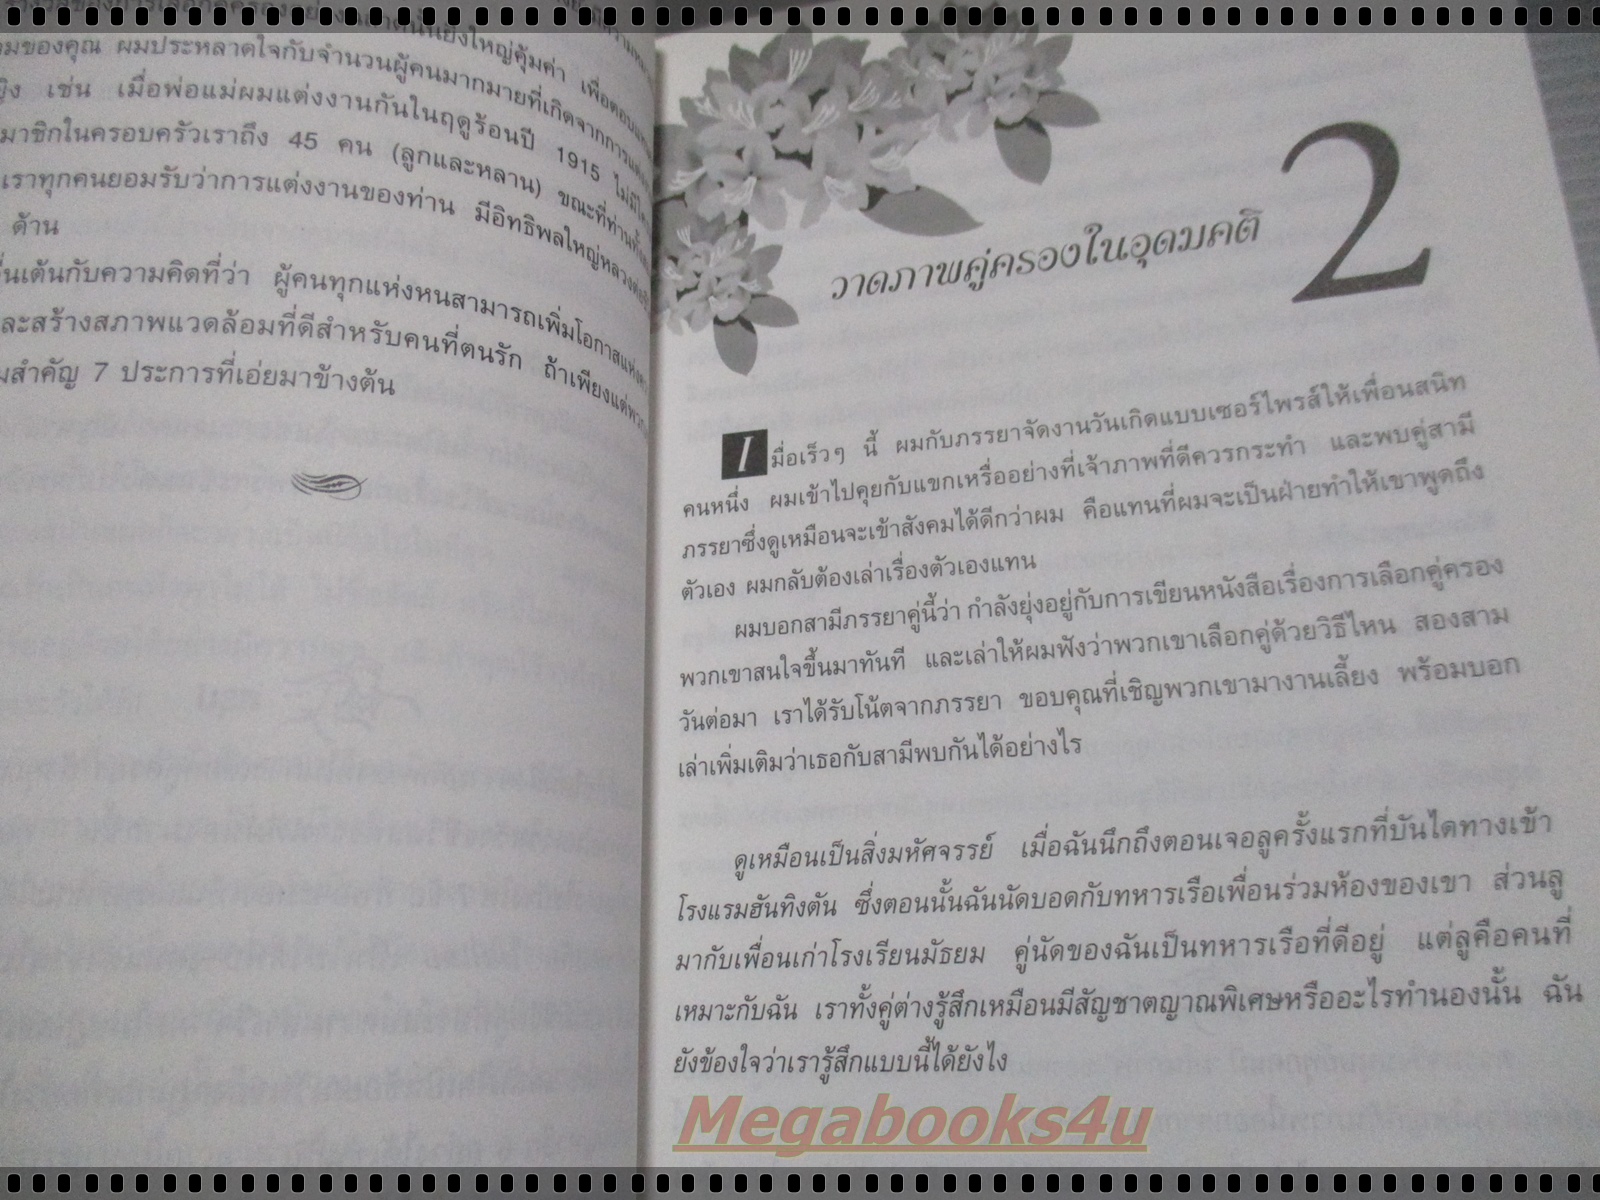 มของคุณ ผมประหลาดใจกับจำนวนผู้คนมากมายที่เกิดจากการ
เช่น เมื่อพ่อแม่ผมแต่งงานกันในฤดูร้อนปี 1915 ไม่มี
มาชิกในครอบครัวเราถึง 45 คน (ลูกและหลาน) ขณะที่ท่าน
เราทุกคนยอมรับว่าการแต่งงานของท่าน มีอิทธิพลใหญ่หลวง
ด้าน
ื่นเต้นกับความคิดที่ว่า ผู้คนทุกแห่งหนสามารถเพิ่มโอกาส
ละสร้างสภาพแวดล้อมที่ดีสำหรับคนที่ตนรัก ถ้าเพียงแต่
มสำคัญ 7 ประการที่เอ่ยมาข้างต้น
2
วาดภาพคู่ครองในอุดมคติ
เมื่อเร็วๆ นี้ ผมกับภรรยาจัดงานวันเกิดแบบเซอร์ไพรส์ให้เพื่อนสนิท
คนหนึ่ง ผมเข้าไปคุยกับแขกเหรื่ออย่างที่เจ้าภาพที่ดีควรกระทำ และพบคู่สามี
ภรรยาซึ่งดูเหมือนจะเข้าสังคมได้ดีกว่าผม คือแทนที่ผมจะเป็นฝ่ายทำให้เขาพูดถึง
ตัวเอง ผมกลับต้องเล่าเรื่องตัวเองแทน
ผมบอกสามีภรรยาคู่นี้ว่า กำลังยุ่งอยู่กับการเขียนหนังสือเรื่องการเลือกคู่ครอง
พวกเขาสนใจขึ้นมาทันที และเล่าให้ผมฟังว่าพวกเขาเลือกคู่ด้วยวิธีไหน สองสาม
วันต่อมา เราได้รับโน้ตจากภรรยา ขอบคุณที่เชิญพวกเขามางานเลี้ยง พร้อมบอก
เล่าเพิ่มเติมว่าเธอกับสามีพบกันได้อย่างไร
ดูเหมือนเป็นสิ่งมหัศจรรย์ เมื่อฉันนึกถึงตอนเจอลูครั้งแรกที่บันไดทางเข้า
โรงแรมฮันทิงตัน ซึ่งตอนนั้นฉันนัดบอดกับทหารเรือเพื่อนร่วมห้องของเขา ส่วนลู
มากับเพื่อนเก่าโรงเรียนมัธยม คู่นัดของฉันเป็นทหารเรือที่ดีอยู่ แต่ลูคือคนที่
เหมาะกับฉัน เราทั้งคู่ต่างรู้สึกเหมือนมีสัญชาตญาณพิเศษหรืออะไรทำนองนั้น ฉัน
ยังข้องใจว่าเรารู้สึกแบบนี้ได้ยังไง
Megabooks4u